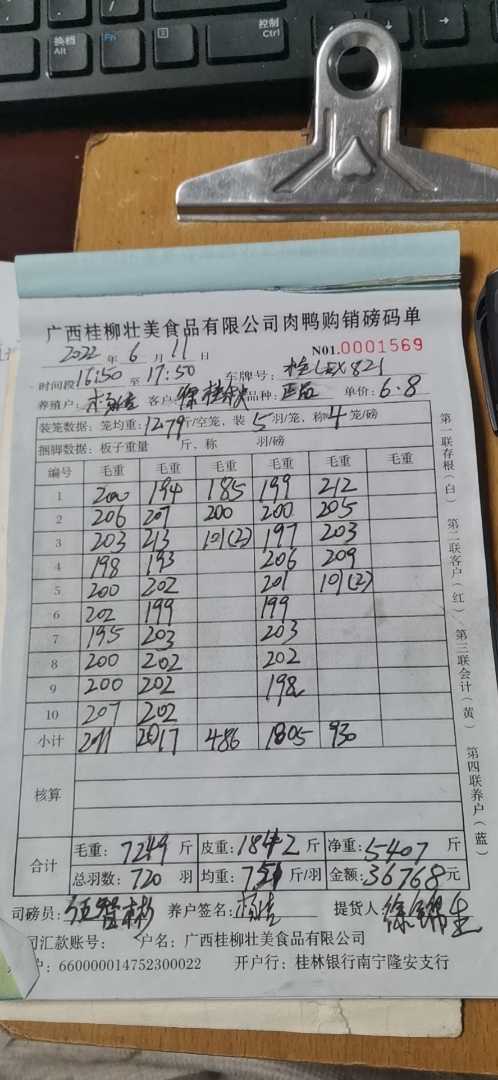 换档
Alt
Fn
控制
Ctrl
广西桂柳壮美食品有限公司肉鸭购销磅码单
2022 年 6 月 11 日 N01.0001569
时间段 16:50 至 17:50 车牌号: 桂 821
养殖户: 客户: 徐桂 品种: 单价: 6.8
装笼数据: 笼均重: 12.79 斤/空笼, 装 5 羽/笼, 称 4 笼/磅
捆脚数据: 板子重量 斤, 称 羽/磅
编号 毛重 毛重 毛重 毛重 毛重 毛重
1 200 194 185 199 212
2 206 207 200 200 205
3 203 213 101(2) 197 203
4 198 193 206 209
5 200 202 201 101(2)
6 202 199 199
7 195 203 203
8 200 202 202
9 200 202 198
10 207 202
小计 2011 2017 486 1805 930
核算
合计 毛重: 7249 斤 皮重: 1842 斤 净重: 5407 斤
总羽数: 720 羽 均重: 7.51 斤/羽 金额: 36768 元
司磅员: 养户签名: 提货人: 徐锦生
汇款账号: 户名: 广西桂柳壮美食品有限公司
户: 660000014752300022 开户行: 桂林银行南宁隆安支行
第一联存根(白) 第二联客户(红) 第三联会计(黄) 第四联养户(蓝)